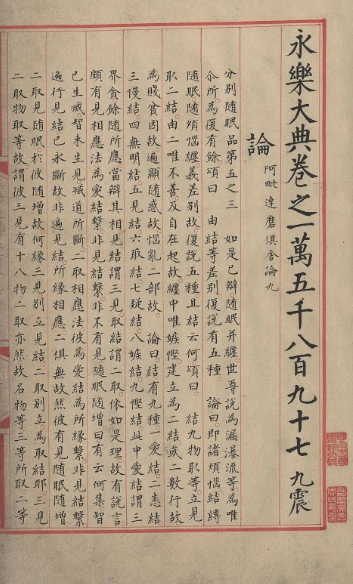 永樂大典卷之一萬五千八百九十七 九震
論 阿毗達磨俱舍論九
分別隨眠品第五之三 如是已辯隨眠并纏世尊說為漏瀑流等為唯
尒所為復有餘頌曰 由結等差別復說有五種 論曰即諸煩惱結縛
隨眠隨煩惱纏義差別故復說五種且結云何頌曰 結九物取等立見
取二結由二唯不善及自在起故纏中唯嫉慳建立為二結或二數行故
為賤貧因故遍顯隨惑故惱亂二部故 論曰結有九種一愛結二恚結
三慢結四無明結五見結六取結七疑結八嫉結九慳結此中愛結謂三
界貪餘隨所應當辯其相見結謂三見取結謂二取依如是理故有說言
頗有見相應法為愛結繫非見結繫非不有見隨眠隨增曰有云何集智
已生滅智未生見滅道所斷二取相應法彼為愛結為所緣繫非見結繫
遍行見結已永斷故非遍見結所緣相應二俱無故然彼有見隨眠隨增
二取見隨眠於彼隨增故何緣三見別立見結二取別立為取結耶三見
二取物取等故謂彼三見有十八物二取亦然故名物等三等所取二等